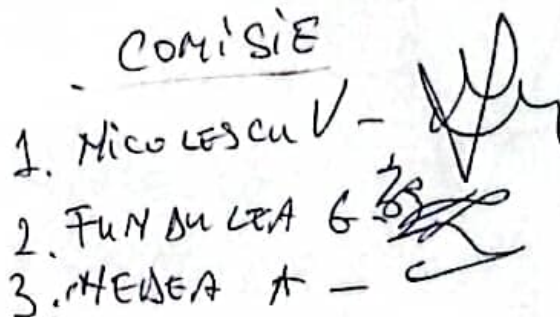 COMiSiE
1. NicoLESCu V -
2. FUNDULEA G
3. NEDEA A -